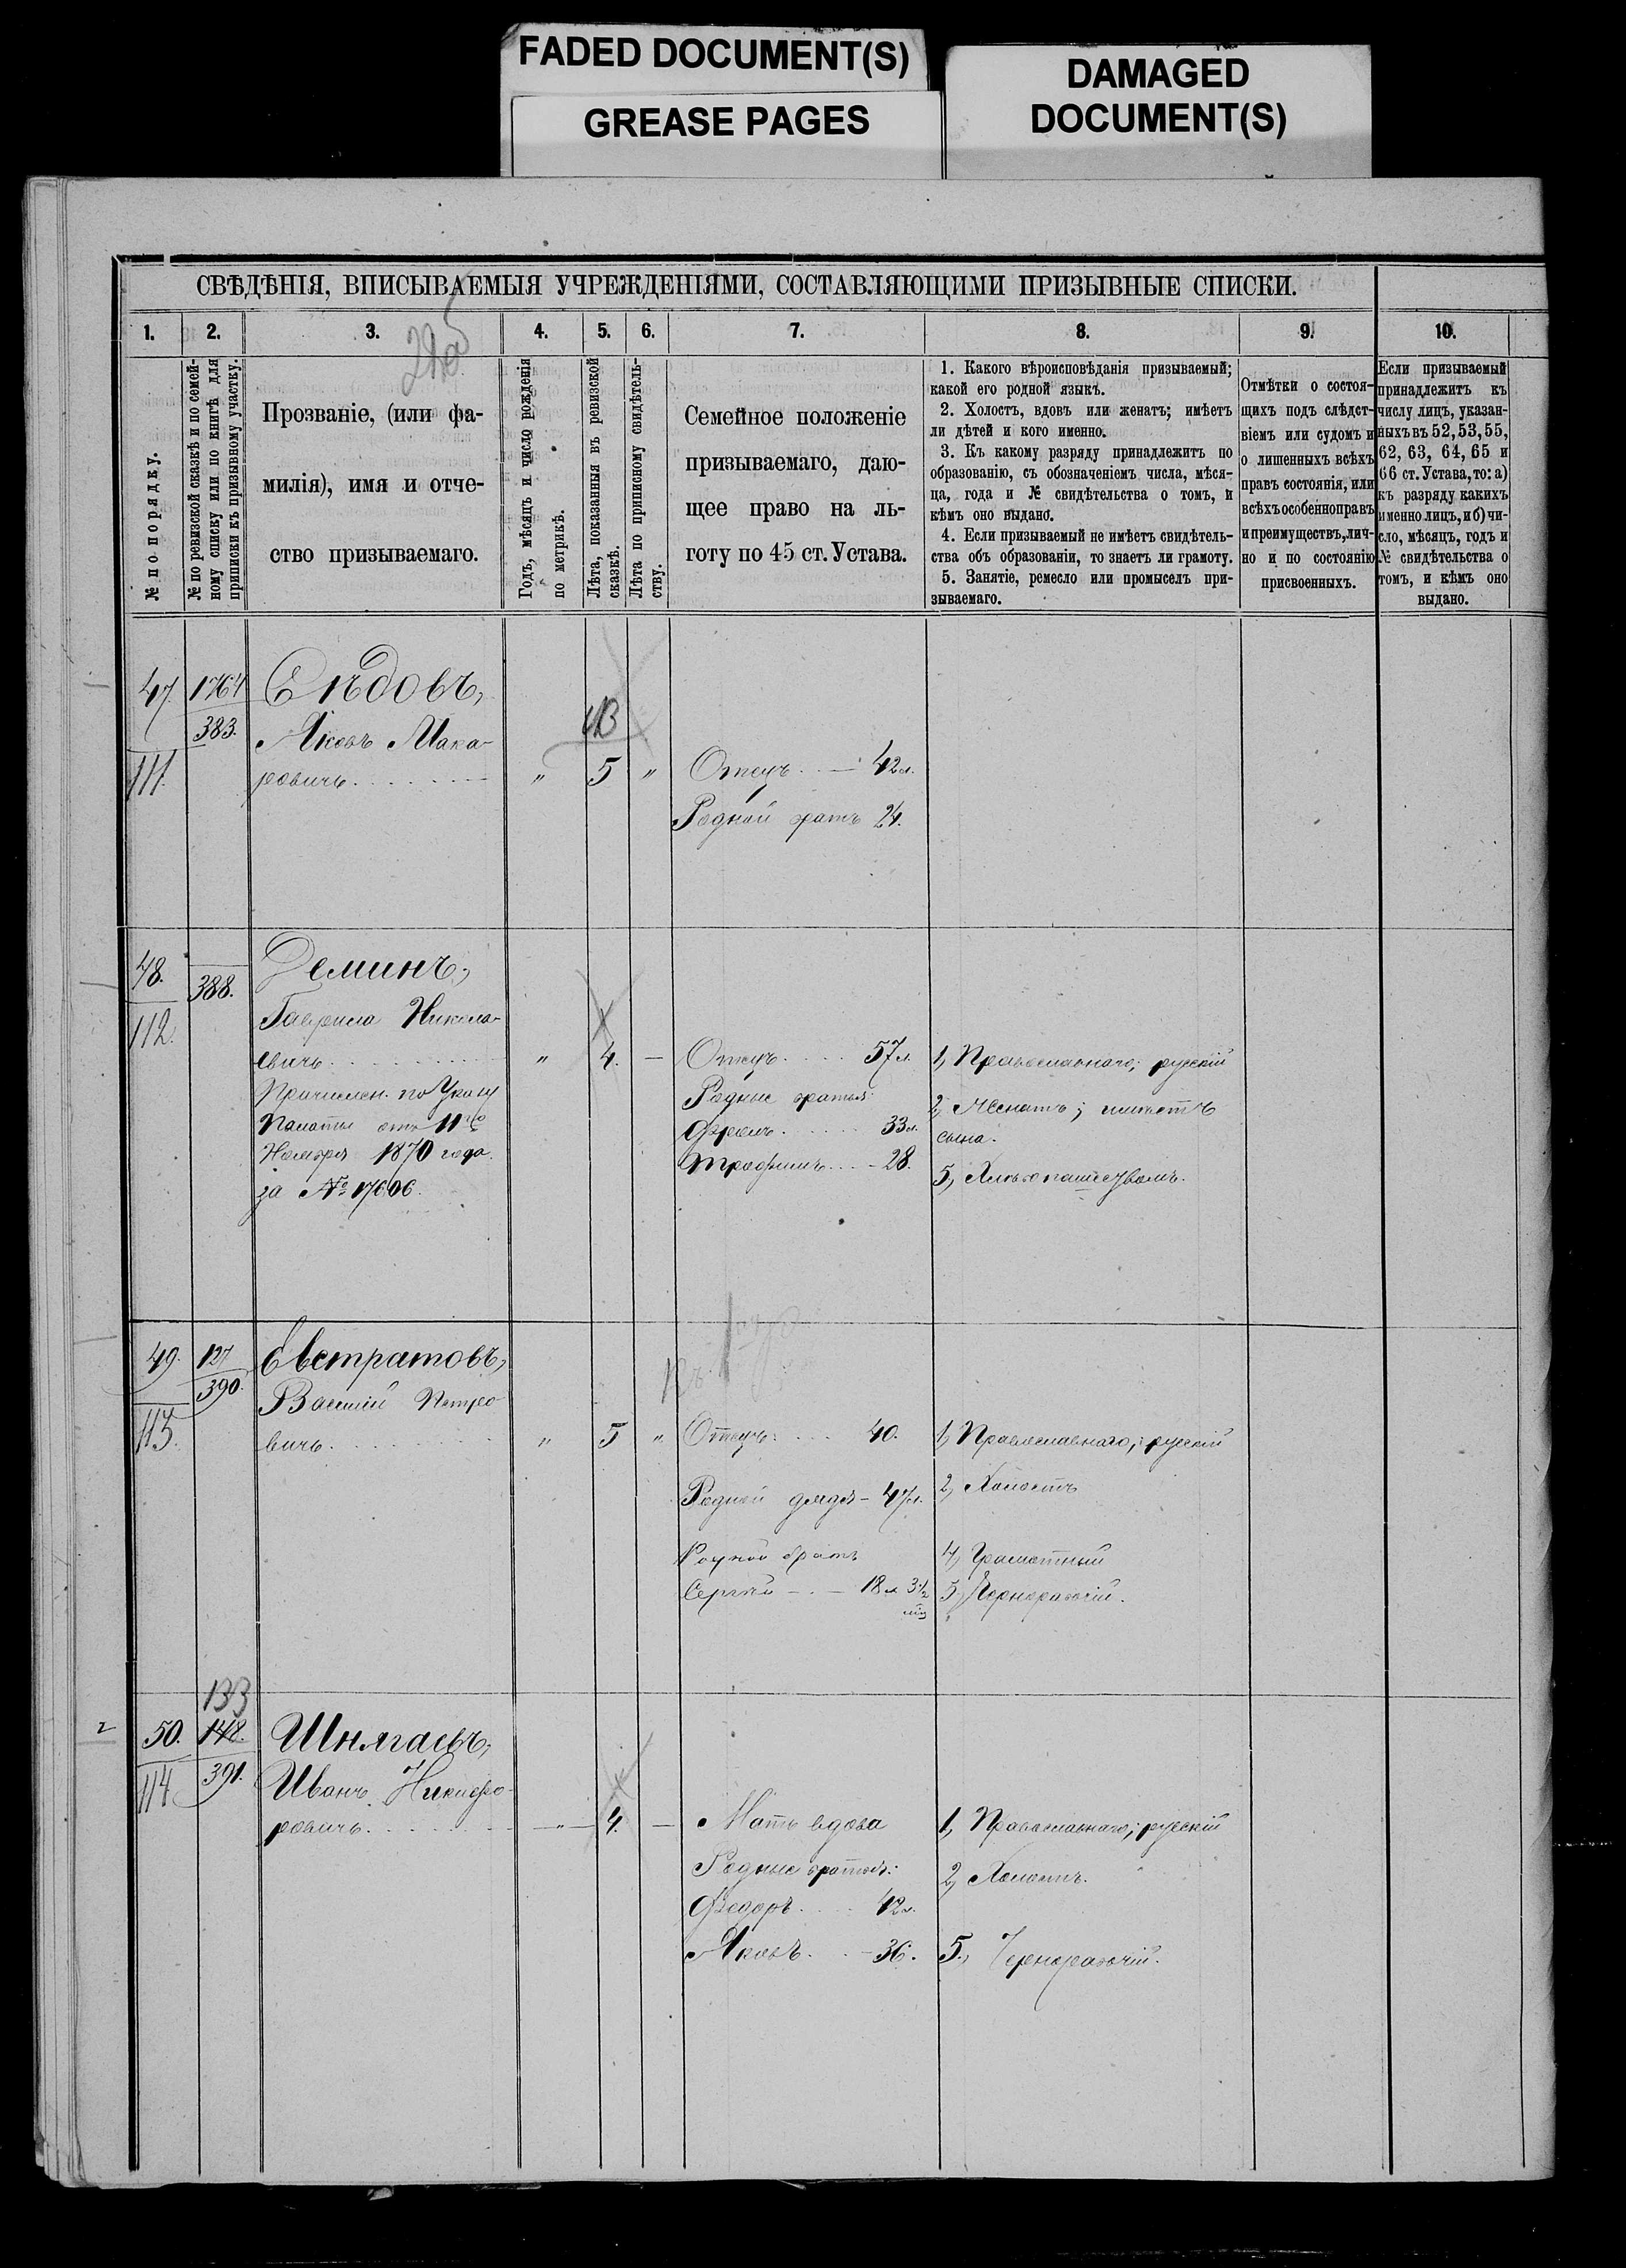 FADED DOCUMENT(S)
GREASE PAGES
DAMAGED
DOCUMENT(S)
СВѢДѢНІЯ, ВПИСЫВАЕМЫЯ УЧРЕЖДЕНІЯМИ, СОСТАВЛЯЮЩИМИ ПРИЗЫВНЫЕ СПИСКИ.
1. 2. 3. 4. 5. 6. 7. 8. 9. 10.
№ по порядку.
№ по ревизской сказкѣ и по семей-
ному списку или по книгѣ для
приписки къ призывному участку.
Прозваніе, (или фа-
милія), имя и отче-
ство призываемаго.
Годъ, мѣсяцъ и число рожденія
по метрикѣ.
Лѣта, показанныя въ ревизской
сказкѣ.
Лѣта по приписному свидѣтель-
ству.
Семейное положеніе
призываемаго, даю-
щее право на ль-
готу по 45 ст. Устава.
1. Какого вѣроисповѣданія призываемый;
какой его родной языкъ.
2. Холостъ, вдовъ или женатъ; имѣетъ
ли дѣтей и кого именно.
3. Къ какому разряду принадлежитъ по
образованію, съ обозначеніемъ числа, мѣся-
ца, года и № свидѣтельства о томъ, и
кѣмъ оно выдано.
4. Если призываемый не имѣетъ свидѣтель-
ства объ образованіи, то знаетъ ли грамоту.
5. Занятіе, ремесло или промыселъ при-
зываемаго.
Отмѣтки о состоя-
щихъ подъ слѣдст-
віемъ или судомъ и
о лишенныхъ всѣхъ
правъ состоянія, или
всѣхъ особенно правъ
и преимуществъ, лич-
но и по состоянію
присвоенныхъ.
Если призываемый
принадлежитъ къ
числу лицъ, указан-
ныхъ въ 52, 53, 55,
62, 63, 64, 65 и
66 ст. Устава, то: а)
къ разряду какихъ
именно лицъ, и б) чи-
сло, мѣсяцъ, годъ и
№ свидѣтельства о
томъ, и кѣмъ оно
выдано.
47. 1764
383.
111.
Яковъ Мака-
ровичъ
" 5 "
Отецъ 42 л.
Родной братъ 24.
48. 388.
112.
Деминъ,
Гаврила Никола-
евичъ
Причислен. по Указу
Палаты отъ 11го
Ноября 1870 года
за № 17606.
" 4. —
Отецъ 57 л.
Родные братья:
Фролъ 33 л.
Трофимъ 28.
1, Православнаго; русскій
2, Женатъ; имѣетъ
сына.
5, Хлѣбопашествомъ.
49. 127
390.
113.
Евстратовъ,
Василій Петро-
вичъ
" 5 "
Отецъ: 40.
Родной дядя - 47 л.
Родной братъ
Сергѣй 18 л 3½
1, Православнаго; русскій
2, Холостъ
4, Грамотный
5, Чернорабочій.
133
50. 148.
391.
114
Иванъ Никифо-
ровичъ
" 4. —
Мать вдова
Родные братья:
Федоръ 42 л.
Яковъ 36.
1, Православнаго; русскій
2, Холостъ.
5, Чернорабочій.